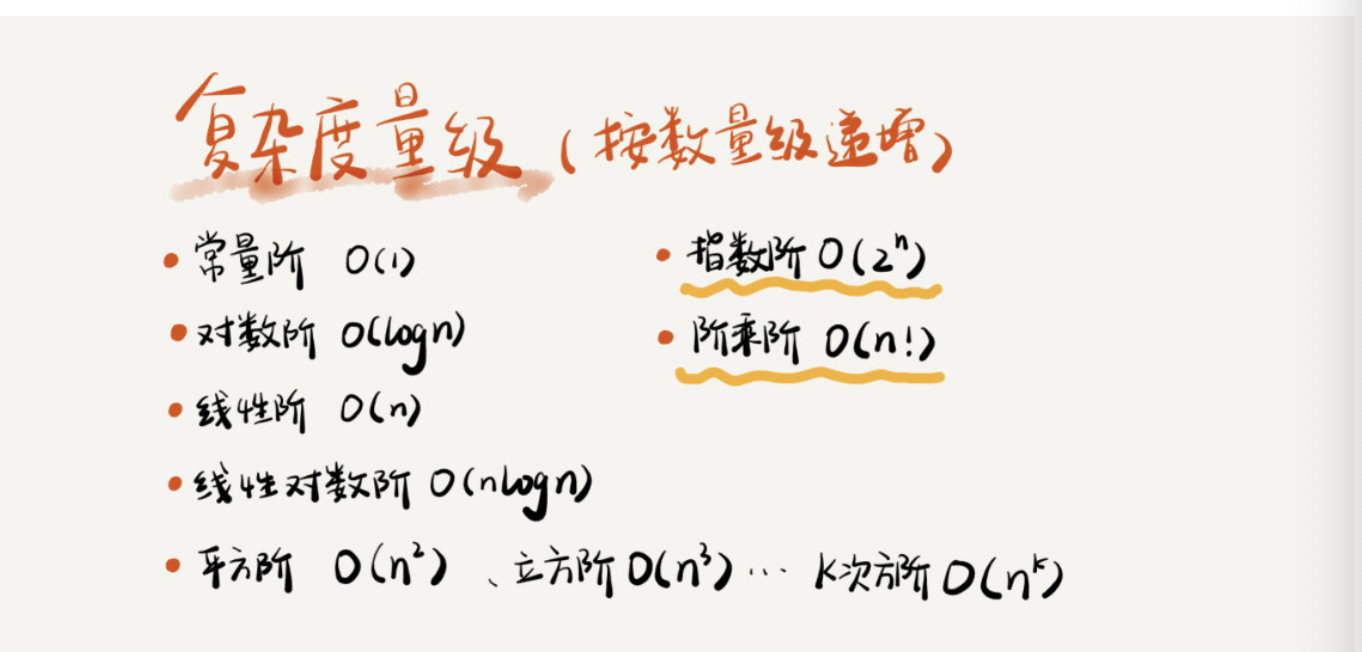 复杂度量级（按数量级递增）
• 常量阶 O(1)
• 对数阶 O(logn)
• 线性阶 O(n)
• 线性对数阶 O(nlogn)
• 平方阶 O(n²)、立方阶 O(n³) ... k次方阶 O(nᵏ)
• 指数阶 O(2ⁿ)
• 阶乘阶 O(n!)